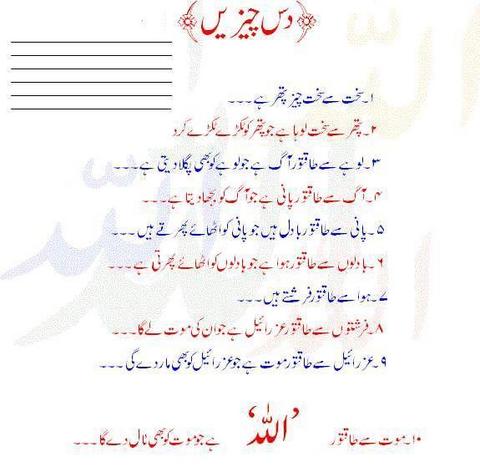 دس چیزیں
۱۔سخت سے سخت چیز پتھر ہے۔۔۔
۲۔پتھر سے سخت لوہا ہے جو پتھر کو ٹکڑے ٹکڑے کرد
۳۔لوہے سے طاقتور آگ ہے جو لوہے کو بھی پگلا دیتی ہے۔۔۔
۴۔آگ سے طاقتور پانی ہے جو آگ کو بجھا دیتا ہے۔۔۔
۵۔پانی سے طاقتور بادل ہیں جو پانی کو اٹھائے پھرتے ہیں۔۔۔
۶۔بادلوں سے طاقتور ہوا ہے جو بادلوں کو اٹھائے پھرتی ہے۔۔۔
۷۔ہوا سے طاقتور فرشتے ہیں۔۔۔
۸۔فرشتوں سے طاقتور عزرائیل ہے جو ان کی موت لے گا۔۔۔
۹۔عزرائیل سے طاقتور موت ہے جو عزرائیل کو بھی مار دے گی۔۔۔
۱۰۔موت سے طاقتور ’اللہ‘ ہے جو موت کو بھی ٹال دے گا۔۔۔